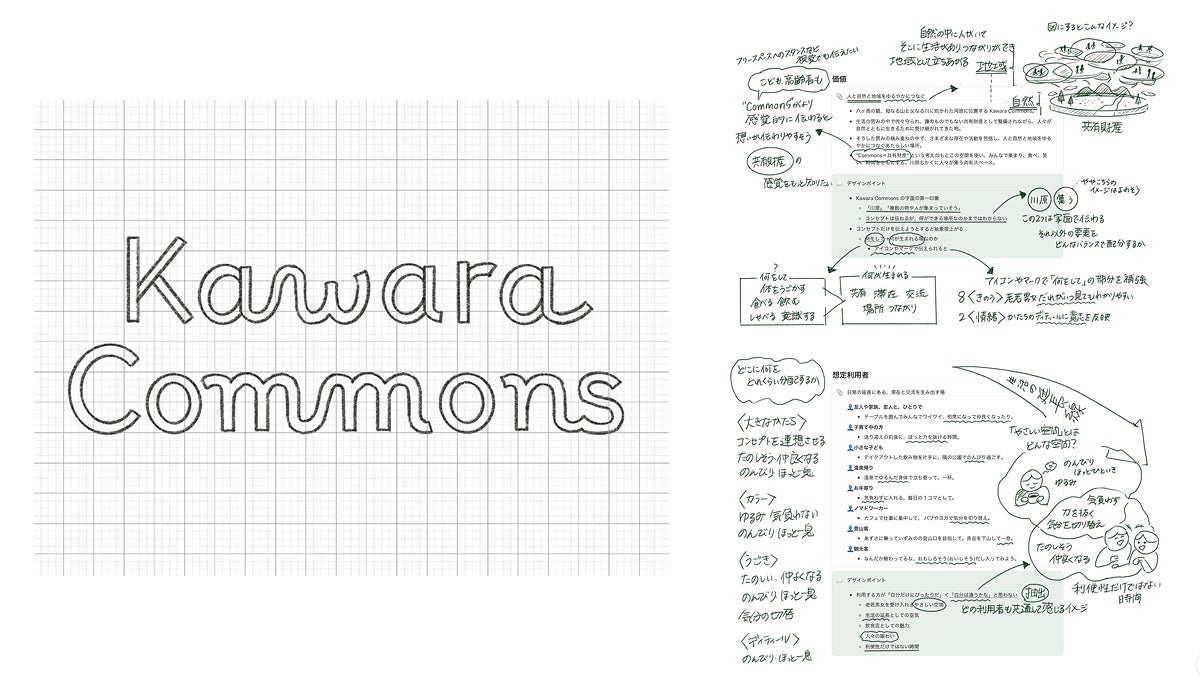 Kawara
Commons
フリースペースへのスタンスなど
視覚でも伝えたい
こども、高齢者も
"Commons"がより
感覚的に伝わると
想いが伝わりやすそう
共有財産 の
感覚をもっと知りたい
自然の中に人がいて
そこに生活がありつながりができ
地域として立ちあがる
地域
自然
図にするとこんなイメージ?
共有財産
価値
人と自然と地域をゆるやかにつなぐ
八ヶ岳の麓、母なる山と父なる川に抱かれた河原に位置する Kawara Commons。
生活の営みの中で代々守られ、誰のものでもない共有財産として整備されながら、人々が
自然とともに生きるために受け継がれてきた地。
そうした営みの積み重ねの中で、さまざまな存在や活動を包括し、人と自然と地域をゆる
やかにつなぐあたらしい場所。
"Commons=共有財産"という考えのもとこの空間を使い、みんなで集まり、食べ、見
い、時間をともにする。川原ちかくに人々が集う共有スペース。
デザインポイント
Kawara Commons の字面の第一印象
「川原」「複数の物や人が集まっていそう」
コンセプトは伝わるが、何ができる場所なのかまではわからない
コンセプトだけを伝えようとすると抽象度上がる
何をして・何が生まれる場なのか
アイコンやマークで伝えられると
川原 集う
ややこちらの
イメージはよわそう
この2つは字面で伝わる
それ以外の要素を
どんなバランスで配分するか
?
何をして
体をうごかす
食べる 飲む
しゃべる 意識する
何が生まれる
共有 滞在 交流
場所 つながり
アイコンやマークで「何をして」の部分を補強
8〈きのう〉老若男女だれがいつ見てもわかりやすい
2〈情緒〉かたちのディティールに意志を反映
どこに何を
どれくらい分配するか
〈大きなかたち〉
コンセプトを連想させる
たのしそう・仲良くなる
のんびり ほっと一息
〈カラー〉
ゆるみ 気負わない
のんびり ほっと一息
〈うごき〉
たのしい・仲よくなる
のんびり ほっと一息
気分の切替
〈ディティール〉
のんびり・ほっと一息
想定利用者
日常の延長にある、滞在と交流を生み出す場
友人や家族、恋人と、ひとりで
テーブルを囲んでみんなでワイワイ、相席になって仲良くなったり。
子育て中の方
送り迎えの前後に、ほっと力を抜ける時間。
小さな子ども
テイクアウトした飲み物を片手に、隣の公園でのんびり過ごす。
温泉帰り
温泉でゆるんだ身体で立ち寄って、一杯。
お年寄り
気負わずに入れる、毎日の1コマとして。
ノマドワーカー
カフェで仕事に集中して、パブやヨガで気分を切り替え。
登山客
あずさに乗っていずみのの登山口を目指して。赤岳を下山して一息。
観光客
なんだか賑わってるな、おもしろそう(おいしそう)だし入ってみよう。
デザインポイント
利用する方が「自分だけにぴったりだ」<「自分は違うかな」と思わない
老若男女を受け入れるやさしい空間
生活の延長としての空気
飲食店としての魅力
人々の賑わい
利便性だけではない時間
生活の延長線
「やさしい空間」とは
どんな空間?
のんびり
ほっとひといき
ゆるみ
気負わず
力を抜く
気分を切り替え
たのしそう
仲良くなる
利便性だけではない
時間
抽出
どの利用者も共通して感じるイメージ